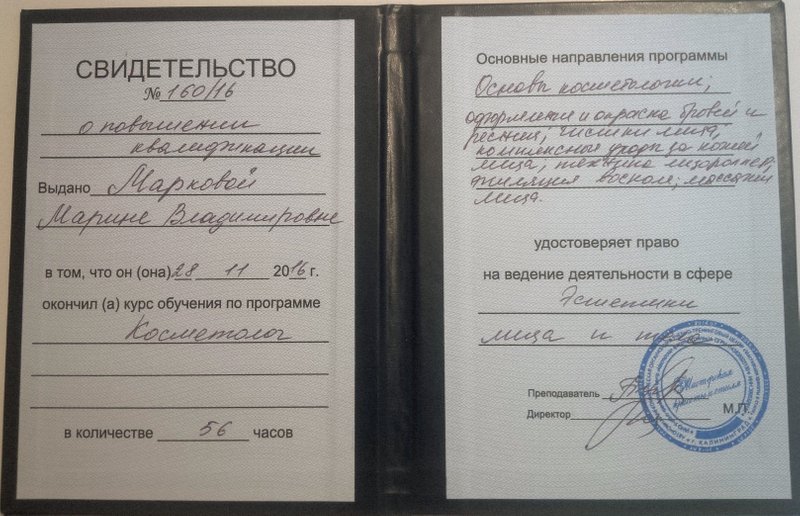 СВИДЕТЕЛЬСТВО
№ 160/16
о повышении
квалификации
Выдано Марковой
Марине Владимировне
в том, что он (она) 28 11 2016 г.
окончил (а) курс обучения по программе
Косметолог
в количестве 56 часов
Основные направления программы
Основы косметологии;
оформление и окраска бровей и
ресниц; чистки лица,
комплексные уходы за кожей
лица; техника
эпиляция воском; массажи
лица.
удостоверяет право
на ведение деятельности в сфере
Эстетики
лица и тела
Преподаватель
Директор
М.П.
Мастерская
г. КАЛИНИНГРАД